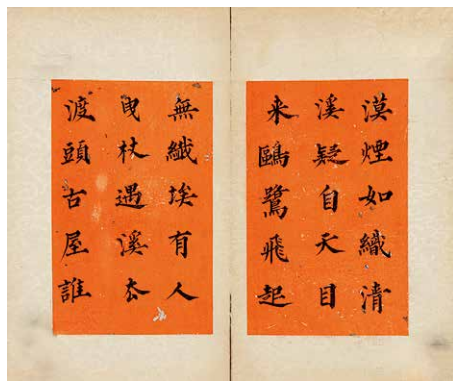 漠煙如織清
溪疑自天目
来鷗鷺飛起
無纖埃有人
曳杖遇溪厺
渡頭古屋誰